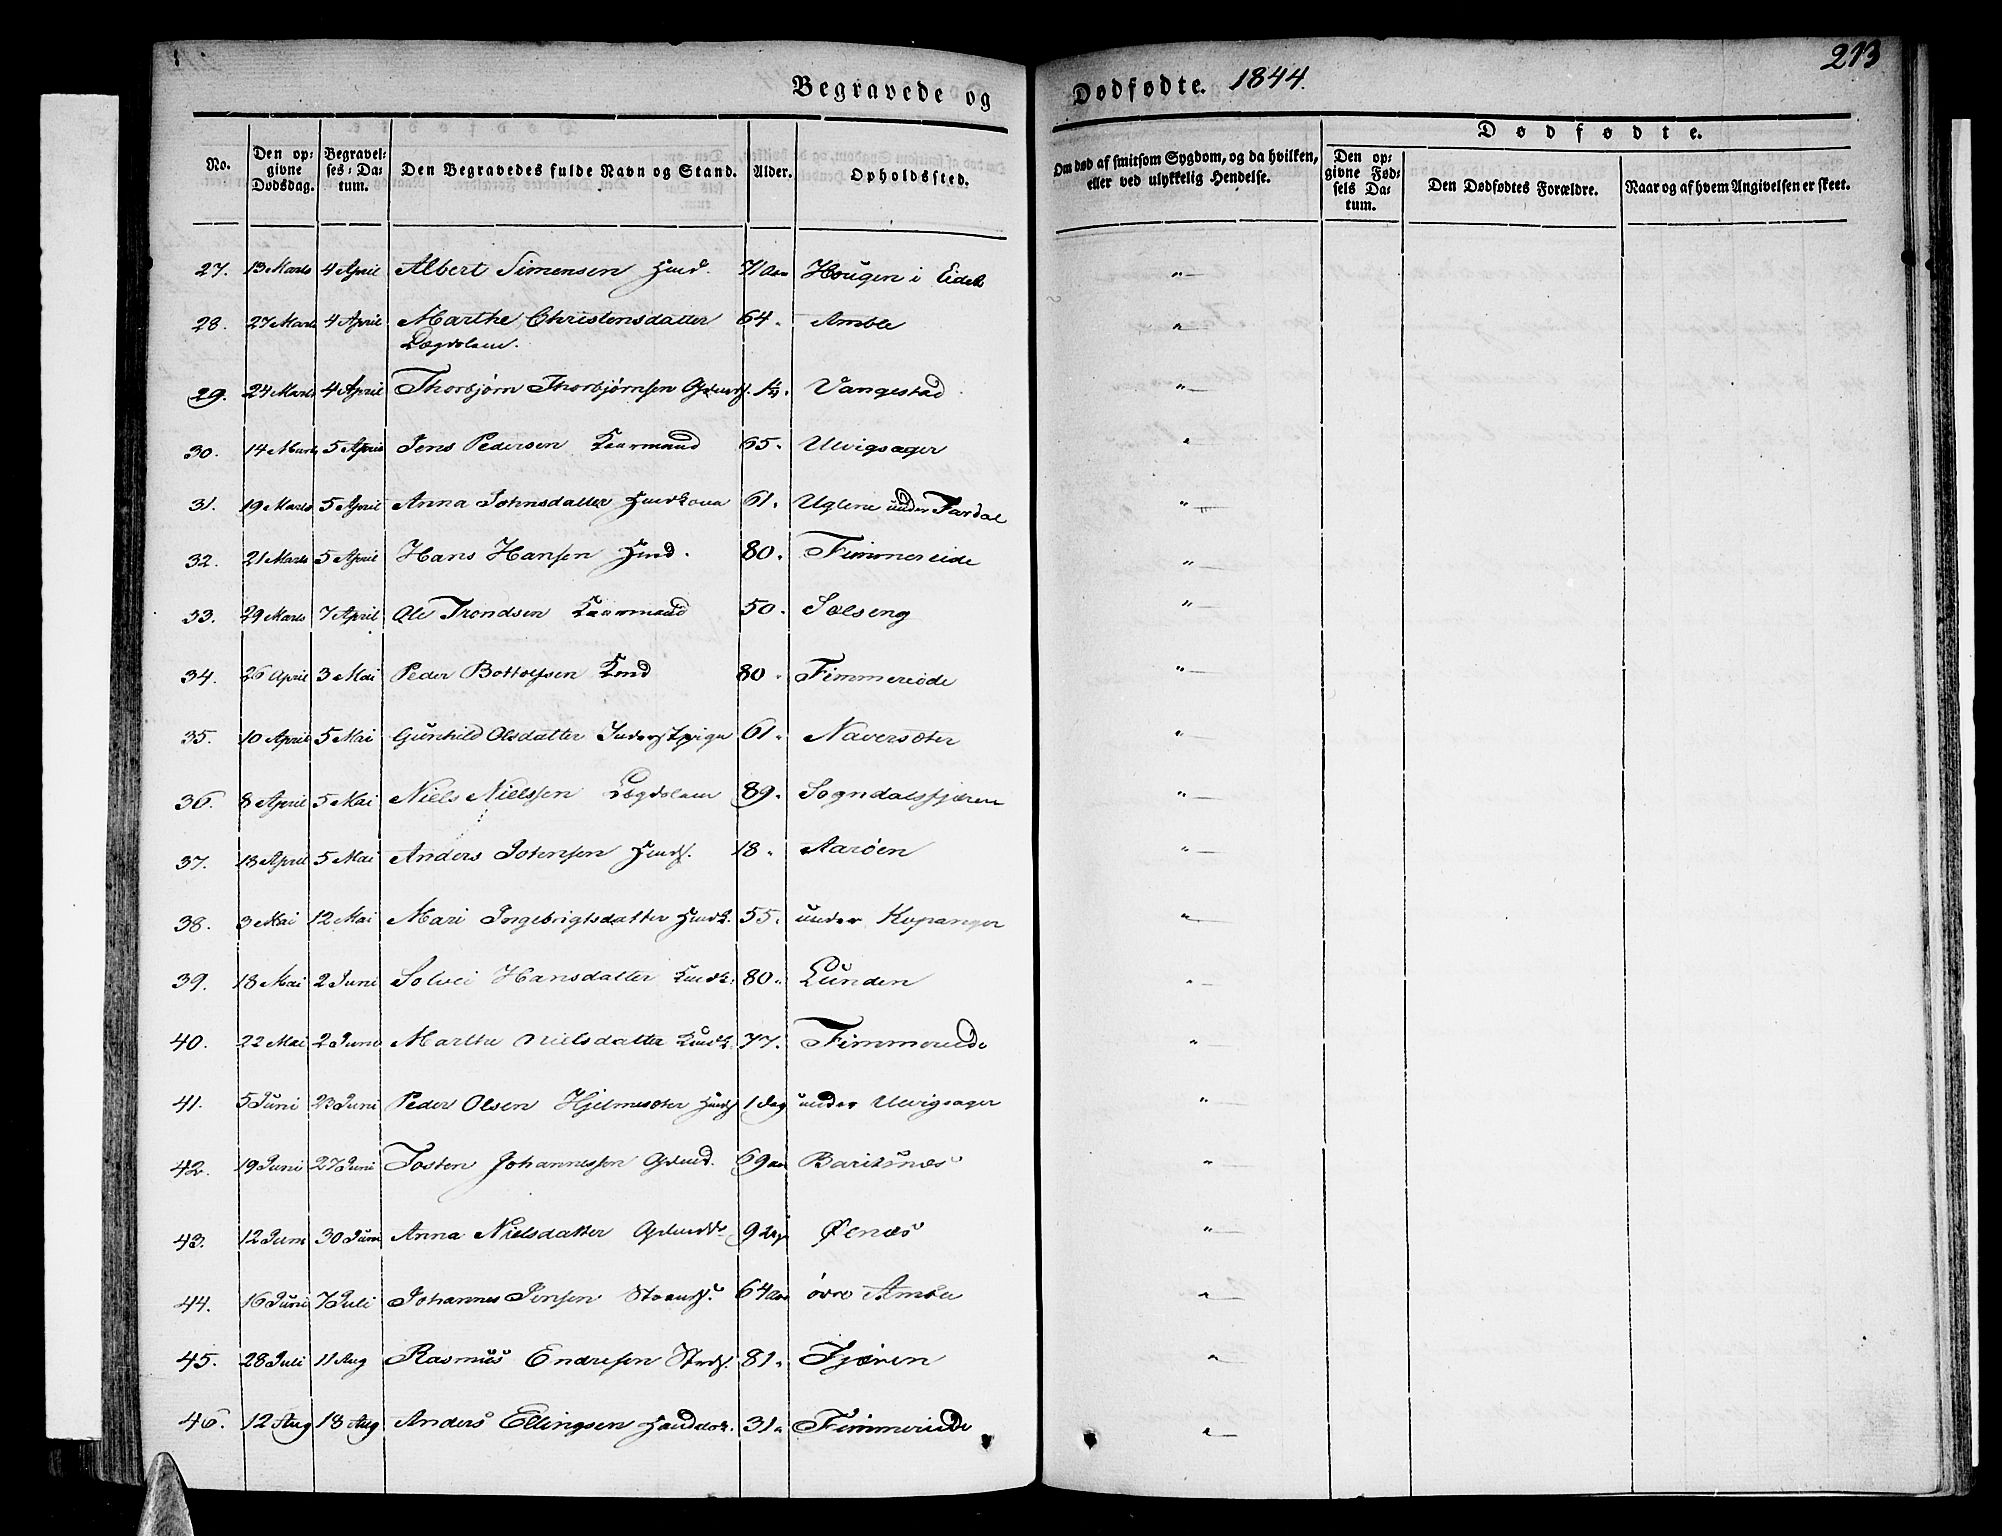 213
Begravede og Dødfødte. 1844.
No.
Den opgivne Dødsdag.
Begravelses-Datum.
Den Begravedes fulde Navn og Stand.
Alder.
Opholdssted.
Om død af smitsom Sygdom, og da hvilken, eller ved ulykkelig Hendelse.
Dødfødte.
Den opgivne Fødsels Datum.
Den Dødfødtes Forældre.
Naar og af hvem Angivelsen er skeet.
27. 13 Marts 4 April Albert Simensen 71 Aar Hougen i Eidet "
28. 27 Marts 4 April Marthe Christensdatter 64 " Amble "
Lægdslem.
29. 24 Marts 4 April Thorbjørn Thorbjørnsen Vangestad "
30. 14 Marts 5 April Jens Pedersen Kaarmand 65 " Ulvigsager "
31. 19 Marts 5 April Anna Johnsdatter Huuskone 61 " Uglene under Fardal "
32. 21 Marts 5 April Hans Hansen 80 " Fimmereide "
33. 29 Marts 7 April Ole Trondsen Kaarmand 50 " Sælseng "
34. 26 April 3 Mai Peder Bottolfsen 80 " Fimmereide "
35. 10 April 5 Mai Gunhild Olsdatter 61 " Navarsæter "
36. 8 April 5 Mai Niels Nielssen Lægdslem 89 " Sogndalsfjæren "
37. 13 April 5 Mai Anders Johnsen 18 " Aarøen "
38. 3 Mai 12 Mai Mari Ingebrigtsdatter 55 " under Kopanger "
39. 18 Mai 2 Juni Solvei Hansdatter 80 " Lunden "
40. 22 Mai 2 Juni Marthe Nielsdatter 77 " Fimmereide "
41. 5 Juni 23 Juni Peder Olsen Hjelmesæter 1 Dag under Ulvigsager "
42. 19 Juni 27 Juni Tosten Johannessen 69 Aar "
43. 12 Juni 30 Juni Anna Nielsdatter 9 Dage Øenæs "
44. 16 Juni 7 Juli Johannes Jensen 64 Aar øvre Amble "
45. 28 Juli 11 Aug Rasmus Endresen 81 " Fjæren "
46. 12 Aug 18 Aug Anders Ellingsen 31 " Fimmereide "